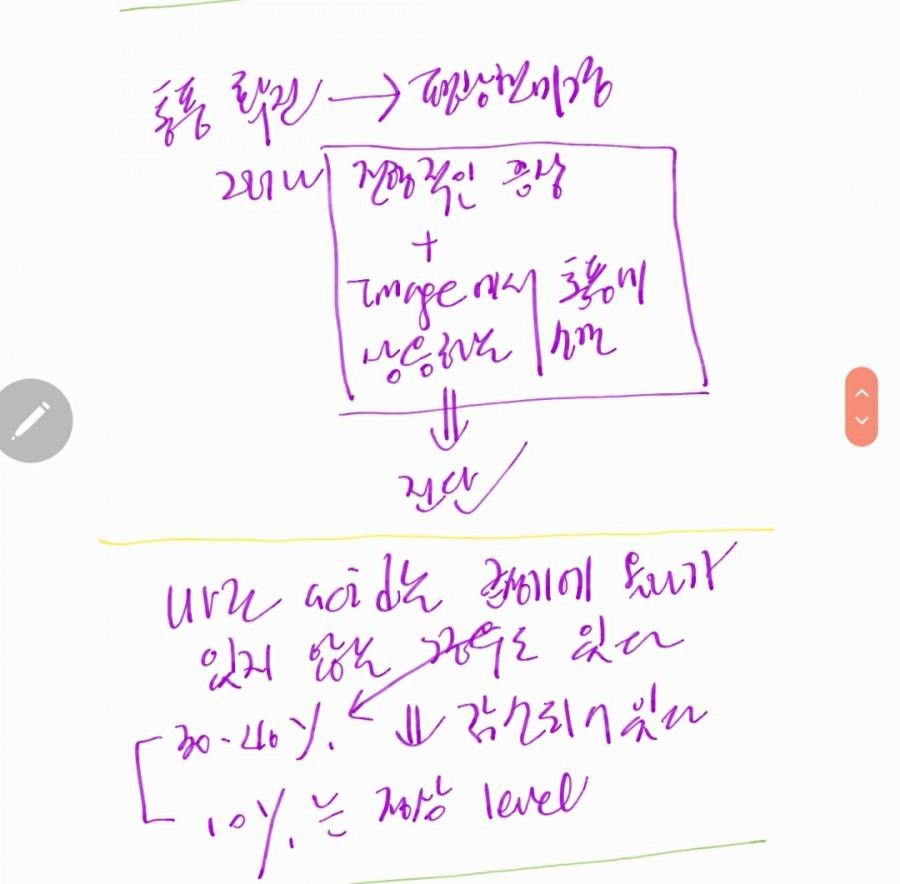 통풍 확진 → 편광현미경
그러나 전형적인 증상
+
Image에서 통풍에
상응하는 소견
⇓
진단
uric acid는 급성기에
있지 않는 경우도 있다
30-40%. ⇓ 감소되어있다
10%.는 정상 level